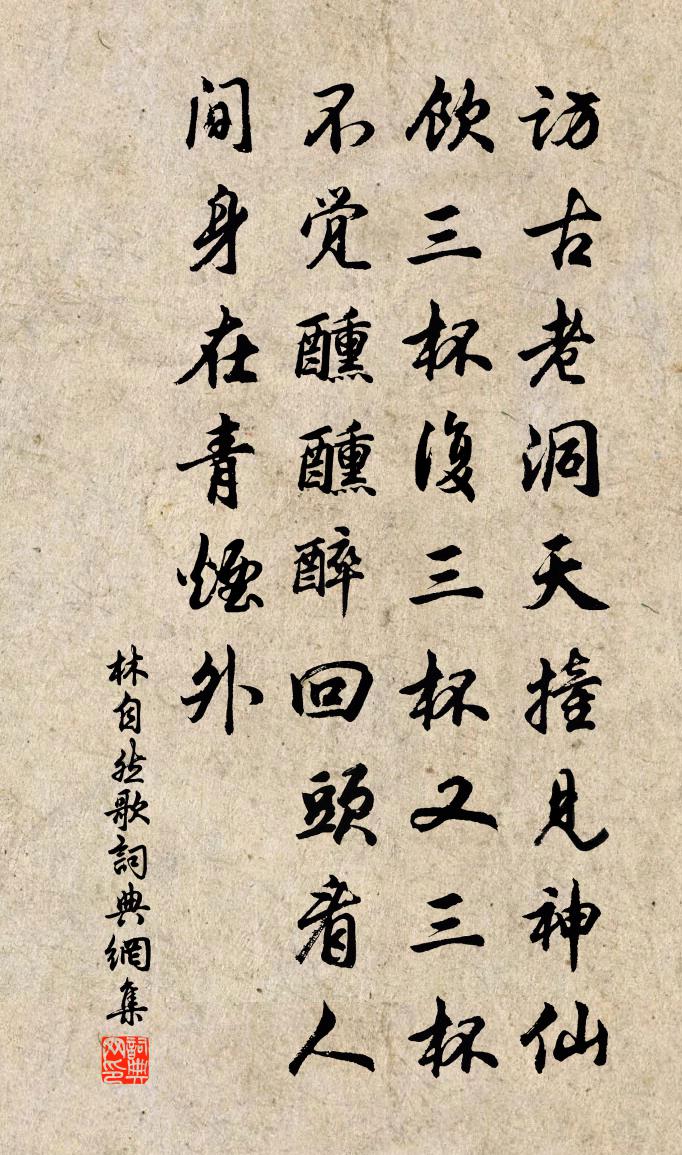 訪古老洞天撞見神仙
飲三杯復三杯又三杯
不覚醺醺醉回頭看人
间身在青煙外
林自然歌詞典網集
詞典網印